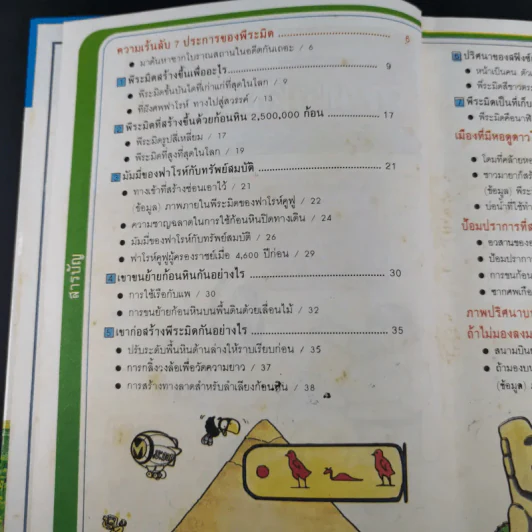 ความเร้นลับ 7 ประการของพีระมิด 5
● มาค้นหาซากโบราณสถานในอดีตกันเถอะ / 6
1 พีระมิดสร้างขึ้นเพื่ออะไร 9
● พีระมิดขั้นบันไดที่เก่าแก่ที่สุดในโลก / 9
● ที่ฝังศพฟาโรห์ ทางไปสู่สวรรค์ / 13
2 พีระมิดที่สร้างขึ้นด้วยก้อนหิน 2,500,000 ก้อน 17
● พีระมิดรูปสี่เหลี่ยม / 17
● พีระมิดที่สูงที่สุดในโลก / 19
3 มัมมี่ของฟาโรห์กับทรัพย์สมบัติ 21
● ทางเข้าที่สร้างซ่อนเอาไว้ / 21
(ข้อมูล) ภาพภายในพีระมิดของฟาโรห์คูฟู / 22
● ความชาญฉลาดในการใช้ก้อนหินปิดทางเดิน / 24
● มัมมี่ของฟาโรห์กับทรัพย์สมบัติ / 26
● ฟาโรห์คูฟูผู้ครองราชย์เมื่อ 4,600 ปีก่อน / 29
4 เขาขนย้ายก้อนหินกันอย่างไร 30
● การใช้เรือกับแพ / 30
● การขนย้ายก้อนหินบนพื้นดินด้วยเลื่อนไม้ / 32
5 เขาก่อสร้างพีระมิดกันอย่างไร 35
● ปรับระดับพื้นหินด้านล่างให้ราบเรียบก่อน / 35
● การกลิ้งวงล้อเพื่อวัดความยาว / 37
● การสร้างทางลาดสำหรับลำเลียงก้อนหิน / 38
สารบัญ
6 ปริศนาของสฟิงซ์
● หน้าเป็นคน ตัว
● พีระมิดสีขาว
7 พีระมิดเป็นที่เก็บ
● พีระมิดคือนาฬิ
เมืองที่มีหอดูดาว
● โดมที่คล้ายหอ
● ชาวมายาก็สร้
(ข้อมูล) พีระ
● บ่อน้ำที่ใช้ทำ
ป้อมปราการที่ส
● อวสานของ
● ป้อมปราการ
● การขนก้อน
● ซากศพ
ภาพปริศนาบน
ถ้าไม่มองลงม
● สนามบิน
● ถ้ามองบน
(ข้อมูล)